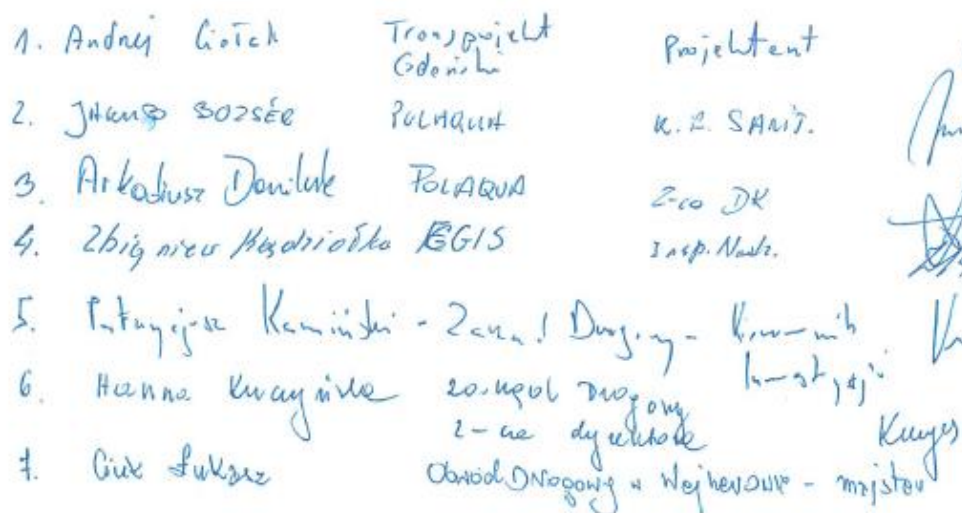 1. Andrzej Ciołek Transprojekt Gdański Projektant
2. POLAQUA K.R. SANIT.
3. Arkadiusz Daniluk POLAQUA Z-ca DK
4. Zbigniew Kędziołka EGIS Insp. Nadz.
5. Patrycjusz Kamiński - Zarząd Drogowy - Kierownik Inwestycji
6. Hanna Zarząd Drogowy
z-ca dyrektora
7. Łukasz Obwód Drogowy w Wejherowie - majster